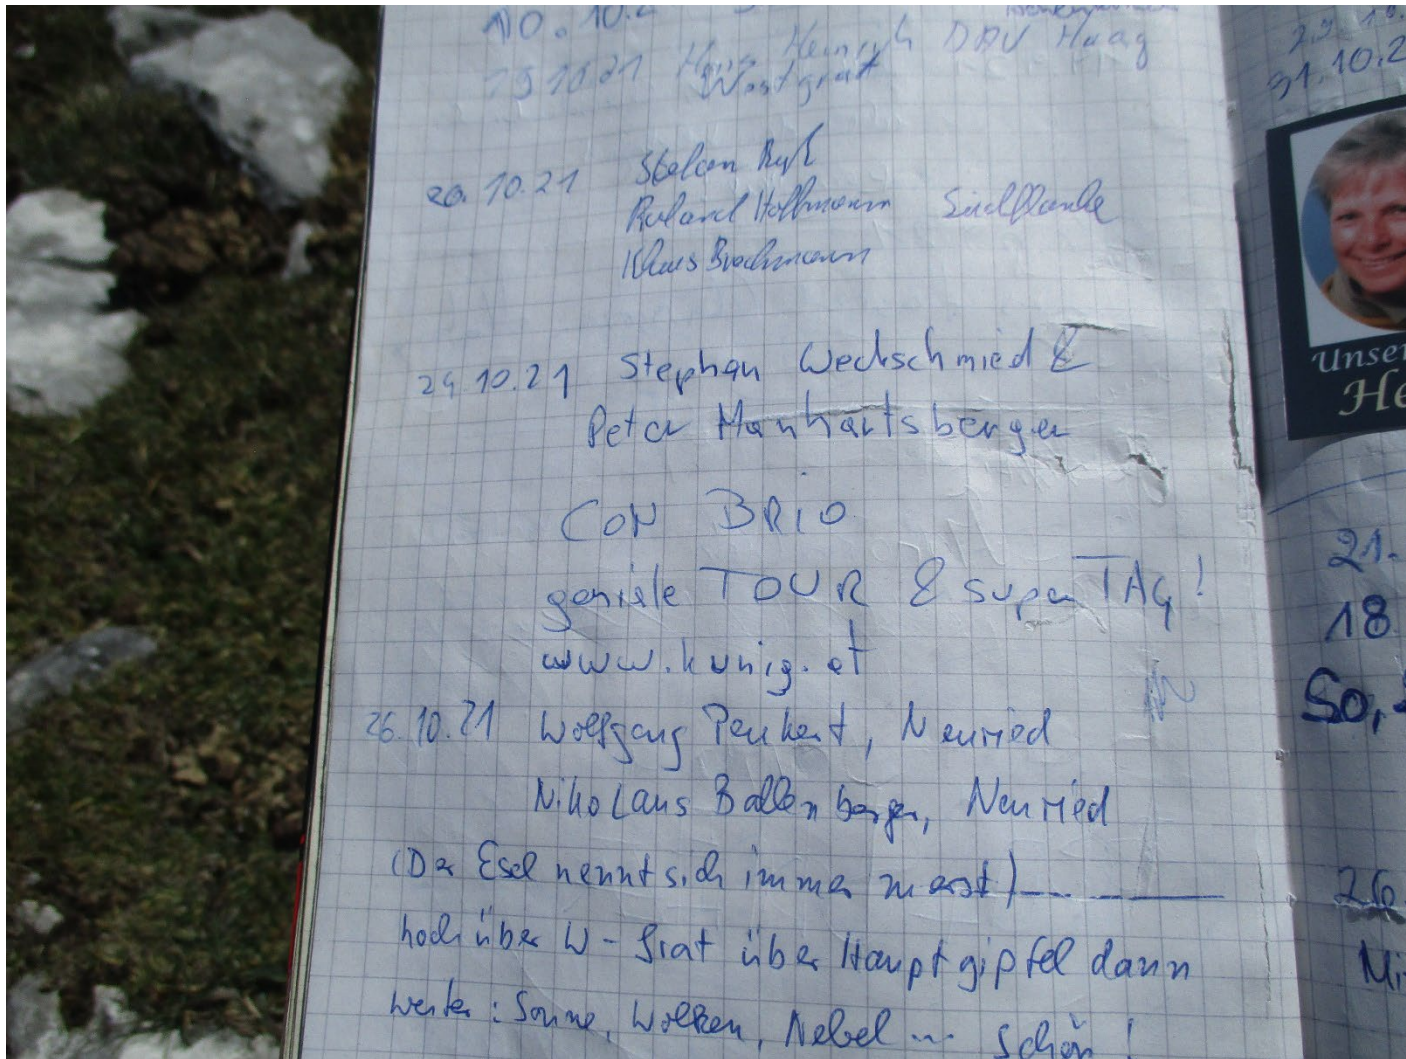 10.10.2
19.10.21 Hans Heinrich DAV Haag
Westgrat
20.10.21 Stefan
Roland Hoffmann Südflanke
Klaus Brachmann
24.10.21 Stephan Weckschmied &
Peter Manhartsberger
CON BRIO
geniale TOUR & super TAG!
www.kunig.at
26.10.21 Wolfgang Penkert, Neuried
Nikolaus Ballenberger, Neuried
(Der Esel nennt sich immer zuerst)
hoch über W-Grat über Hauptgipfel dann
weiter: Sonne, Wolken, Nebel ... schön!
31.10.2
Unser
He
21.
18.
So,
26.
Mi